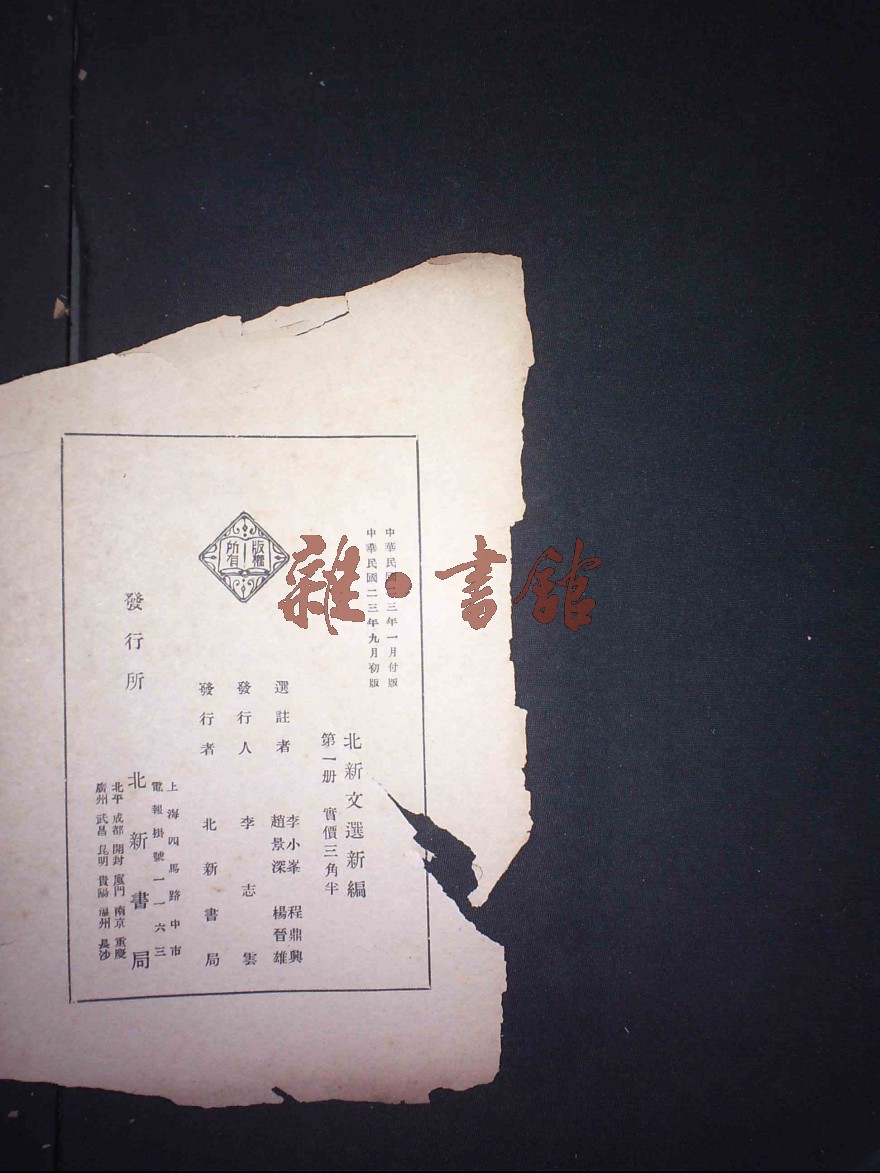 中華民國 三年一月付版
中華民國二三年九月初版
北新文選新編
第一册 實價三角半
選註者 李小峯 程鼎興
趙景深 楊晉雄
發行人 李志雲
發行者 北新書局
版權
所有
發行所 北新書局
上海四馬路中市
電報掛號一一六三
北平 成都 開封 廈門 南京 重慶
廣州 武昌 昆明 貴陽 溫州 長沙
雜·書館